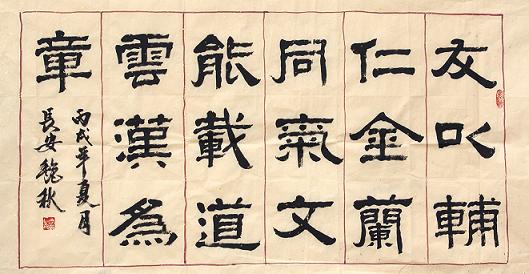 友以輔
仁金蘭
同氣文
能載道
雲漢為
章
丙戌年夏月
長安